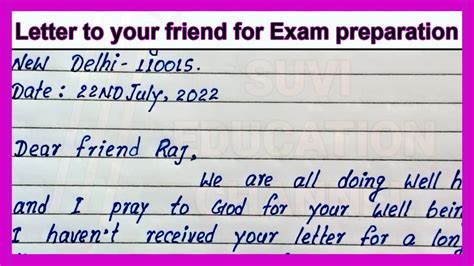 Letter to your friend for Exam preparation
New Delhi-110015.
Date : 22ND July, 2022
SUVI
EDUCATION
Dear friend Raj,
We are all doing well h
and I pray to God for your well bein
I haven't received your letter for a lon